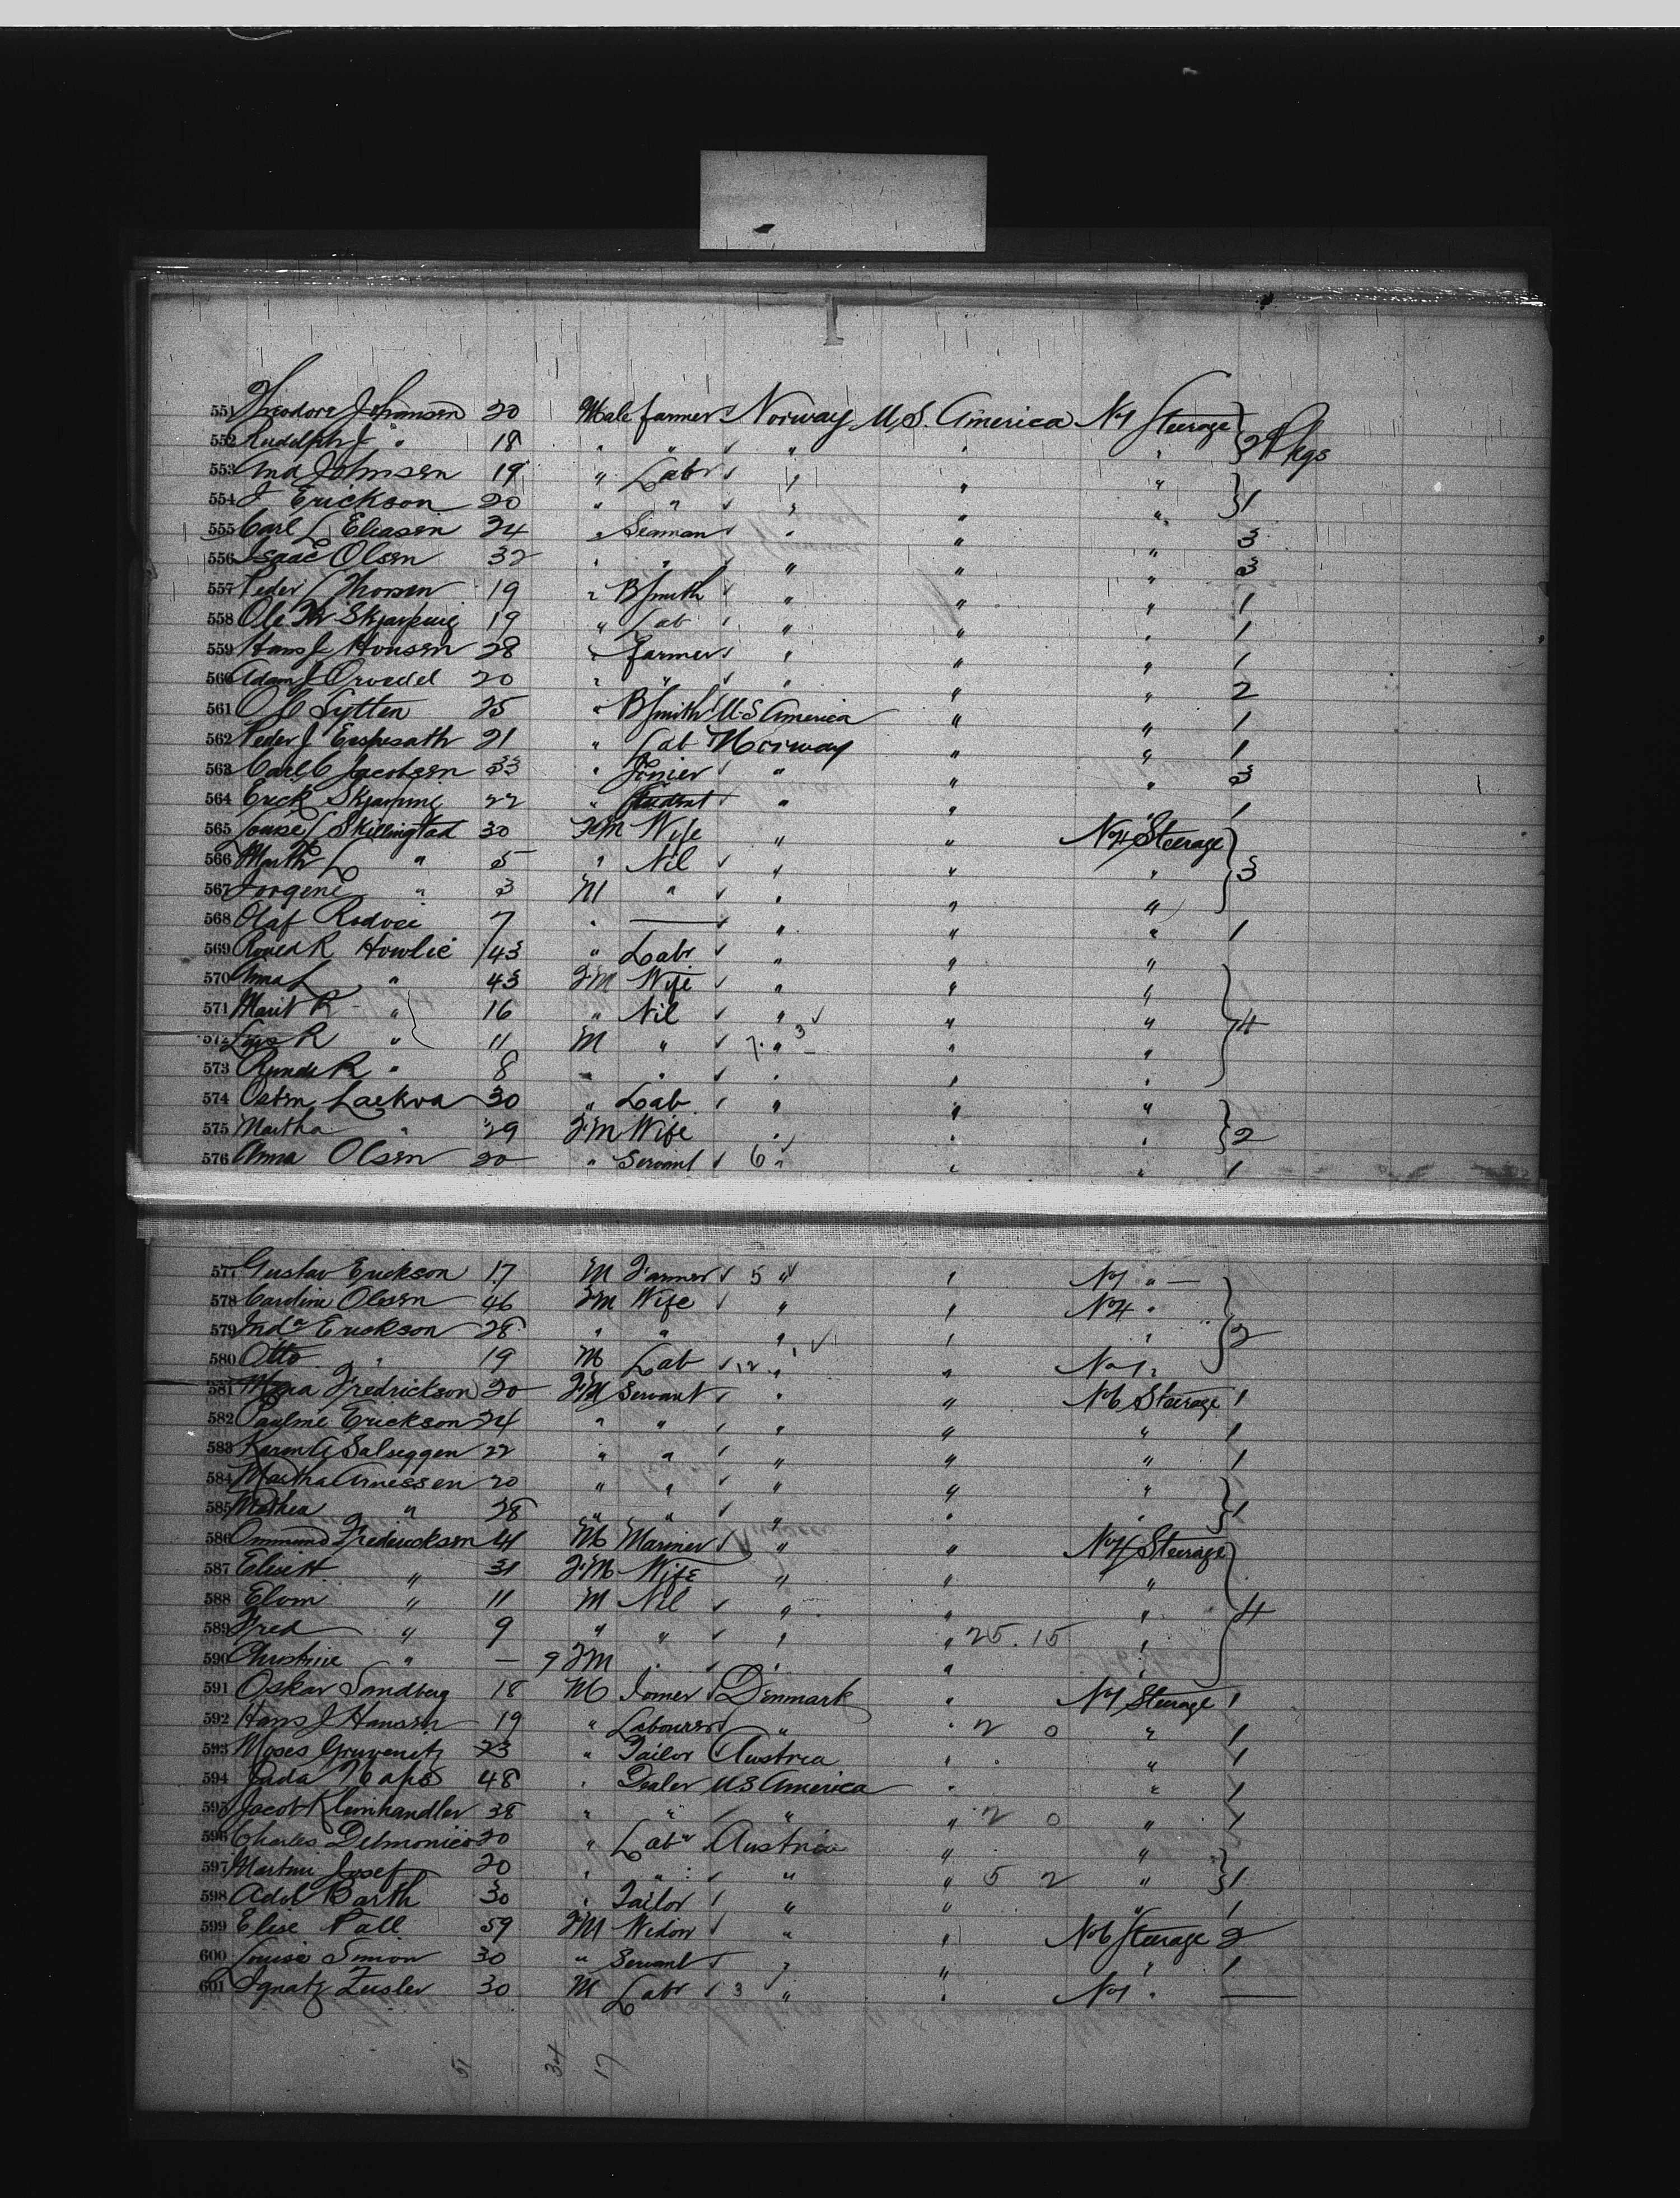 551 Theodore Johansen 20 Male farmer Norway U.S. America No 1 Steerage } 2 Pkgs
552 Rudolph J " 18 " " " " "
553 And Johnsen 19 " Labr " " " } 1
554 J Erickson 20 " " " " "
555 Carl L Eliasen 24 " Seaman " " " 3
556 Isaac Olsen 32 " " " " " 3
557 Peder Thorsen 19 " B Smith " " " 1
558 Ole 19 " Lab " " " 1
559 Hans J Hansen 28 " Farmer " " " 1
560 Adam J 20 " " " " " 2
561 Ole Lytten 25 " B Smith U.S America " " 1
562 Peder J 21 " Lab Norway " " 1
563 Carl C Jacobsen 33 " Joiner " " " 3
564 Erick 22 " Student " " " 1
565 Louise Skillingstad 30 FM Wife " " No 4 Steerage } 3
566 Marth L " 5 " Nil " " "
567 Jorgene " 3 M " " " "
568 Olaf Rodvei 7 " — " " " 1
569 R Howlie 43 " Labr " " " } 4
570 Anna L " 43 FM Wife " " "
571 Marit R " 16 " Nil " " "
572 Lars R " 11 M " 7 " 3 " "
573 R " 8 " " " " "
574 Laekva 30 " Lab " " " } 2
575 Martha " 29 FM Wife " " "
576 Anna Olsen 20 " Servant 6 " " " 1
577 Gustav Erickson 17 M Farmer 5 " " No 1 " — } 2
578 Caroline Olesen 46 FM Wife " " No 4 "
579 Erickson 28 " " " " "
580 Otto " 19 M Lab 12 " " No 1 "
581 Fredrickson 20 FM Servant " " No 6 Steerage 1
582 Pauline Erickson 24 " " " " " 1
583 Karen A Salseggen 22 " " " " " 1
584 Martha Arnessen 20 " " " " " } 1
585 Mathea " 28 " " " " "
586 Ommund Frederickson 41 M Mariner " " No 4 Steerage } 4
587 " 31 FM Wife " " "
588 " 11 M Nil " " "
589 Fred " 9 " " " " 25. 15 "
590 Christine " — 9 FM " " " "
591 Oskar Sandberg 18 M Joiner Denmark " No 1 Steerage 1
592 Hans J Hansen 19 " Labourer " " 2 0 " 1
593 Moses 23 " Tailor Austria " " 1
594 48 " Dealer U S America " " 1
595 Jacob Kleinhandler 38 " " " " 2 0 " 1
596 Charles Delmonico 20 " Labr Austria " " } 1
597 Martini Josef 20 " " " " 5 2 "
598 Adol Barth 30 " Tailor " " " 1
599 Elise Pall 59 FM Widow " " No 6 Steerage 2
600 Louise Simon 30 " Servant " " " 1
601 Ignatz Zeisler 30 M Labr 3 " " No 1 " —
51 34 17